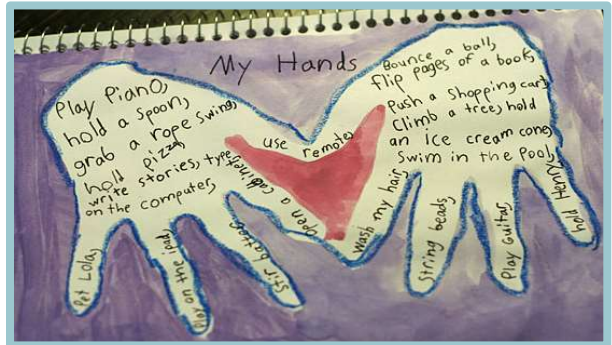 My Hands
Play Piano,
hold a spoon,
grab a rope swing,
hold pizza,
write stories, type
on the computer,
Pet Lola,
Play on the ipad,
Stir batter
open a cabinet,
use remote,
Bounce a ball,
flip pages of a book,
Push a shopping cart,
Climb a tree, hold
an ice cream cone,
Swim in the Pool,
wash my hair,
String beads,
Play Guitar,
hold Henry